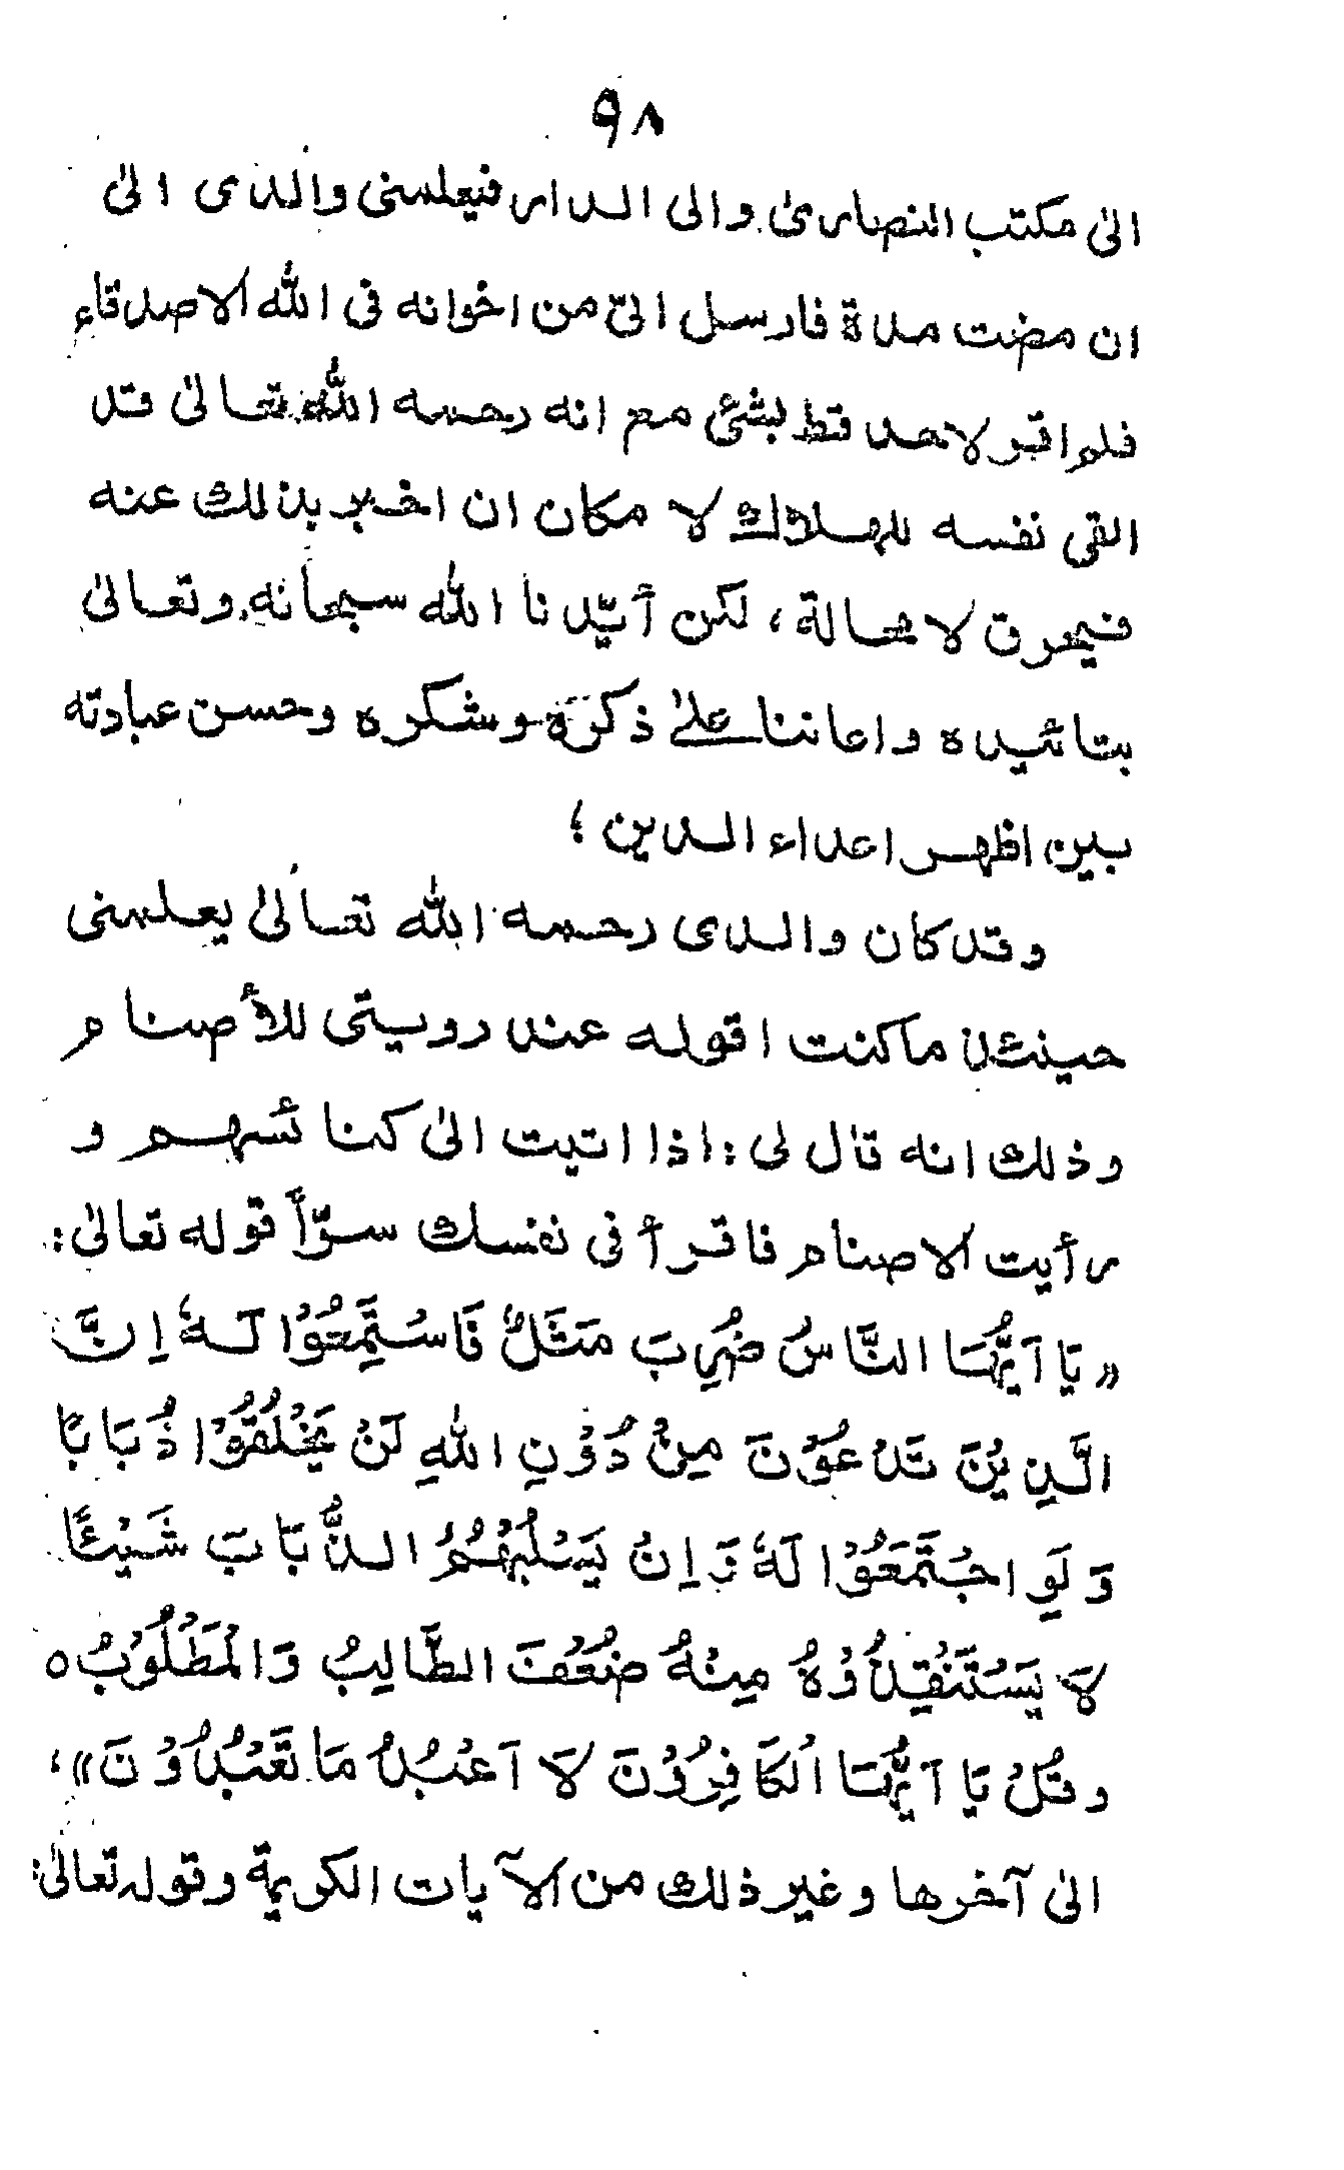 ٩٨
الىٰ مكتب النصارىٰ والى الدار فيعلمنى والدى الىٰ
ان مضت مدة فارسل الىّ من اخوانه فى الله الاصدقاء
فلم اقر لاحد قط بشئ مع انه رحمه الله تعالىٰ قد
القى نفسه للهلاك لا مكان ان اخبر بذلك عنه
فيحرق لا محالة، لكن أيّدنا الله سبحانه وتعالىٰ
بتائيده واعاننا علىٰ ذكره وشكره وحسن عبادته
بين اظهر اعداء الدين ؛
وقد كان والدى رحمه الله تعالىٰ يعلمنى
حينئذ ما كنت اقوله عند رويتى للأصنام
وذلك انه قال لى : اذا اتيت الىٰ كنائسهم و
رأيت الاصنام فاقرأ فى نفسك سرّاً قوله تعالىٰ:
«يَا اَيُّهَا النَّاسُ ضُرِبَ مَثَلٌ فَاسْتَمِعُوْا لَهٗ اِنَّ
الَّذِيْنَ تَدْعُوْنَ مِنْ دُوْنِ اللهِ لَنْ يَّخْلُقُوْا ذُبَابًا
وَلَوِ اجْتَمَعُوْا لَهٗ وَاِنْ يَسْلُبْهُمُ الذُّبَابَ شَيْئًا
لَا يَسْتَنْقِذُوْهُ مِنْهُ ضَعُفَ الطَّالِبُ وَالْمَطْلُوْبُ ه
وقُلْ يَا اَيُّهَا الْكَافِرُوْنَ لَا اَعْبُدُ مَا تَعْبُدُوْنَ»،
الىٰ آخرها وغير ذلك من الآيات الكريمة وقوله تعالىٰ: